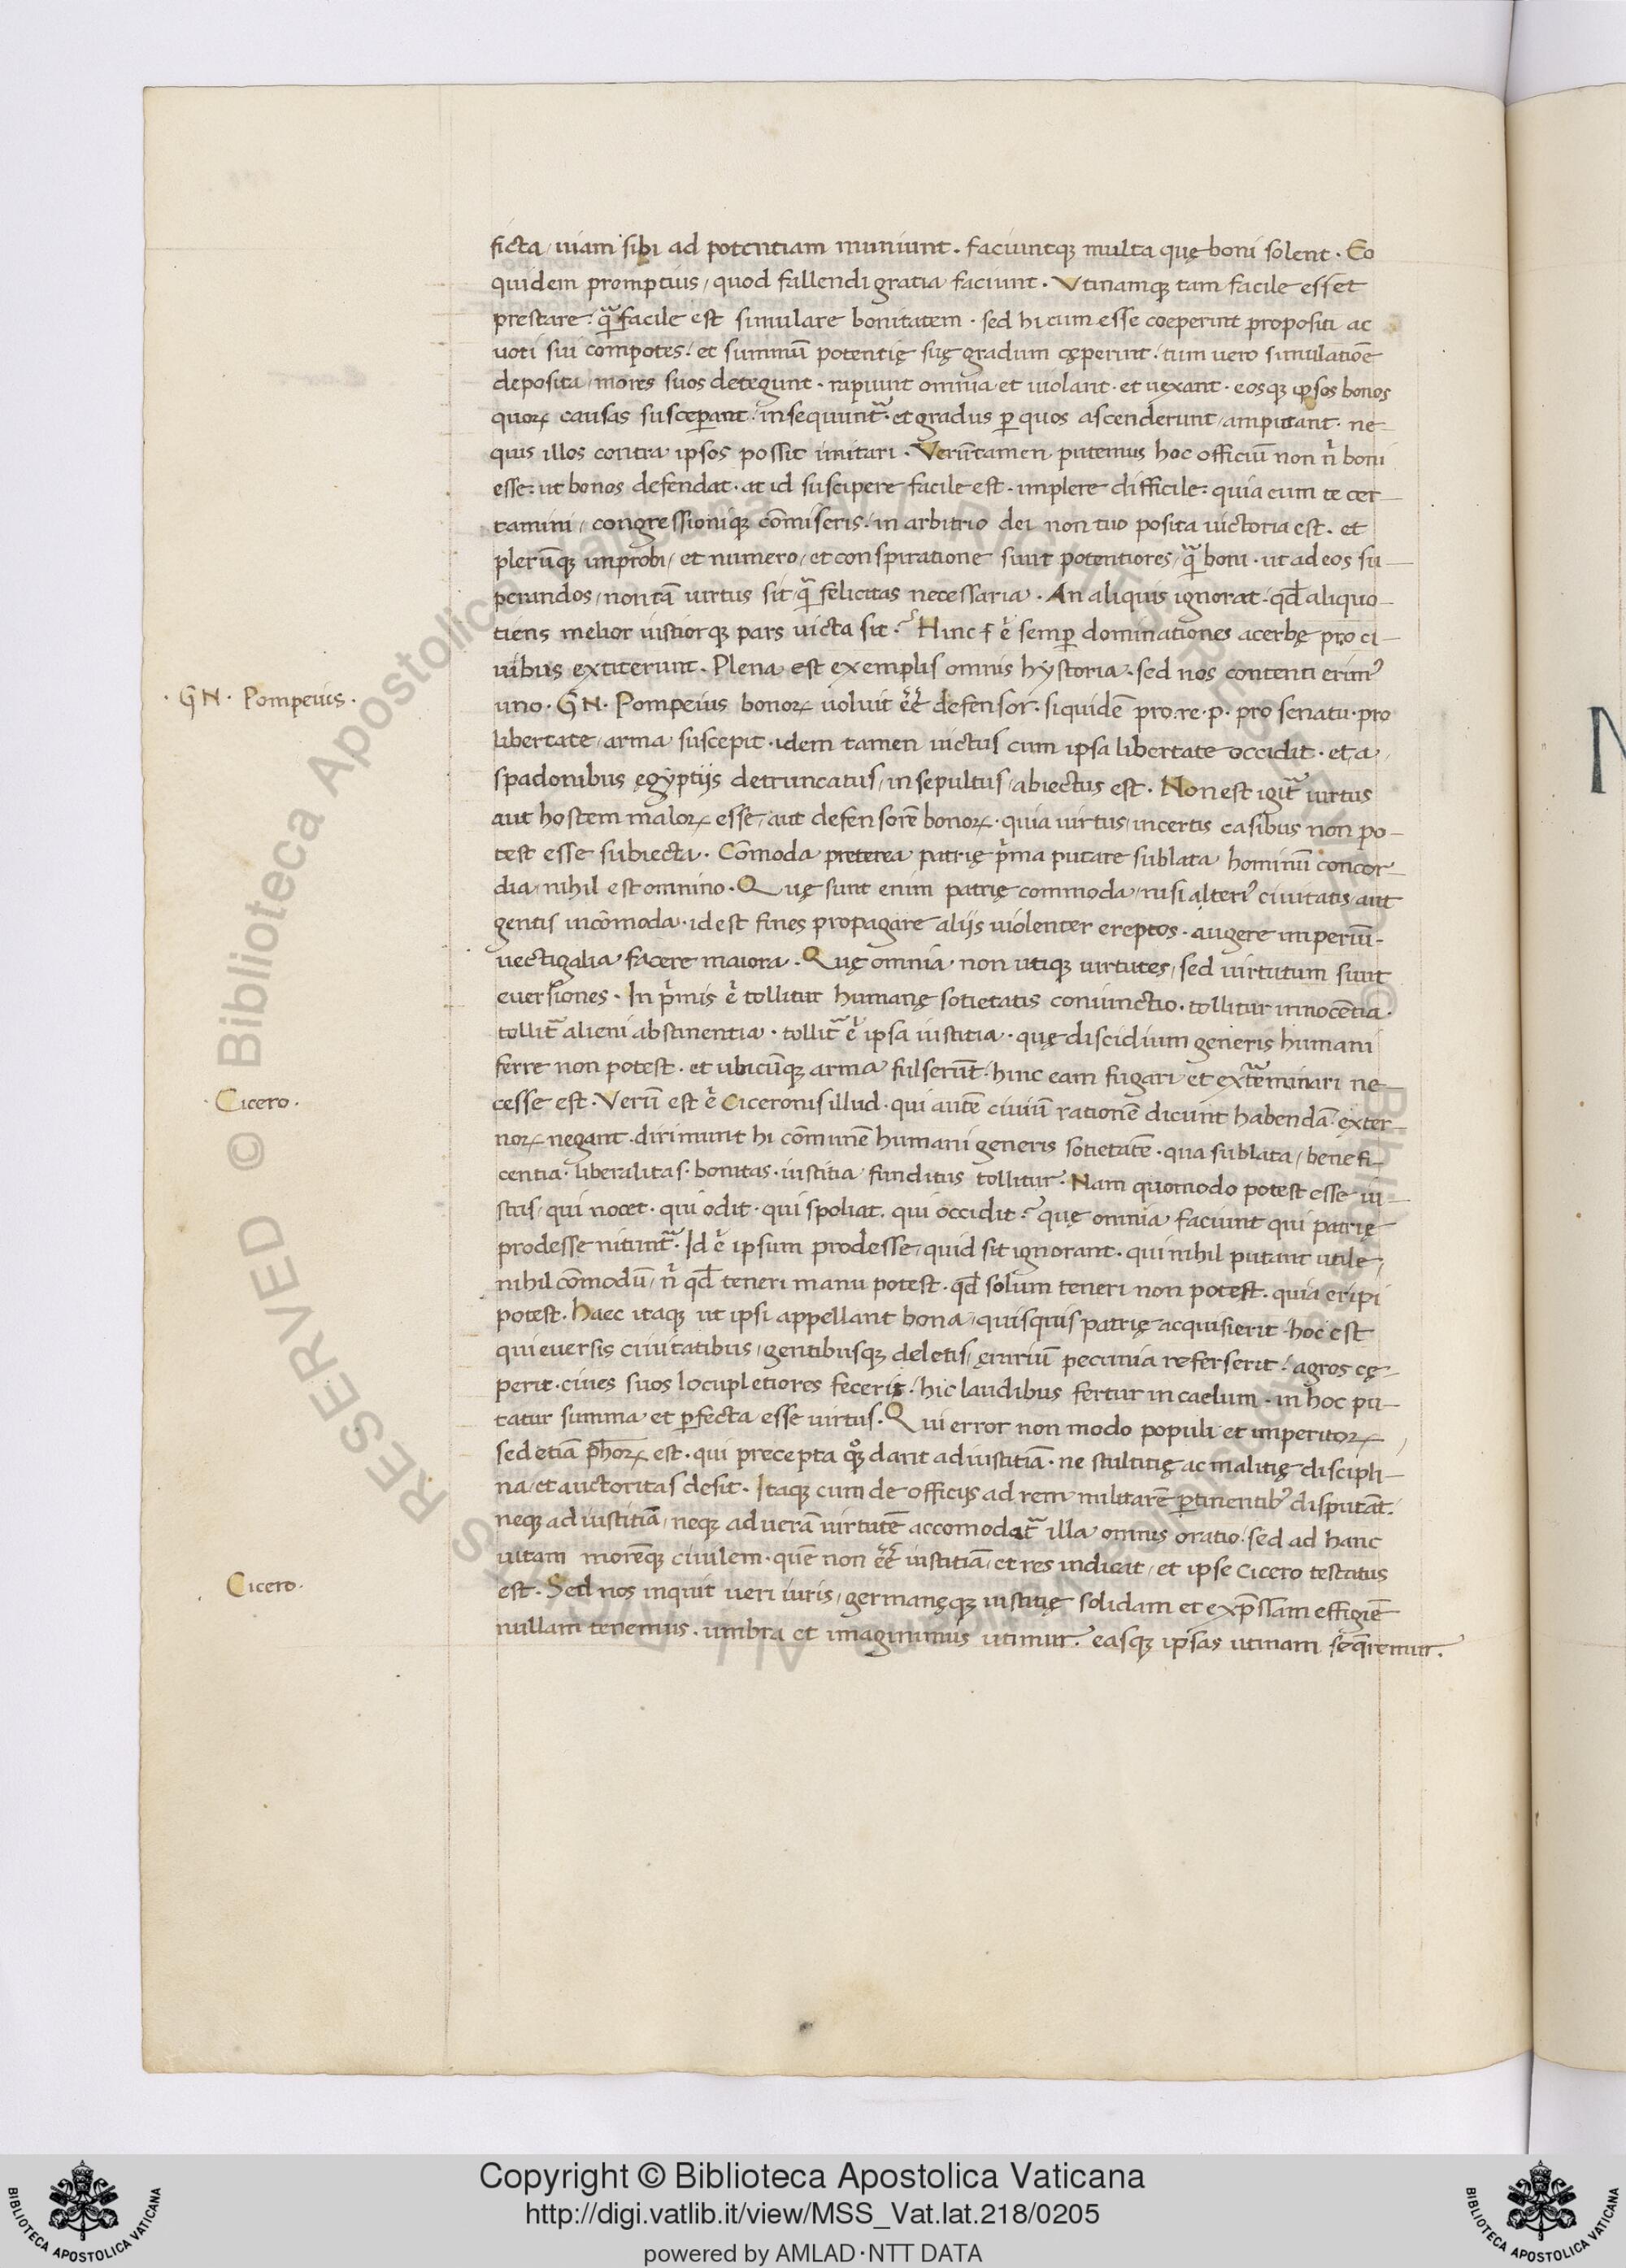 ficta, uiam sibi ad potentiam muniunt. faciuntq; multa quę boni solent. Eo
quidem promptius, quod fallendi gratia faciunt. Vtinamq; tam facile esset
prestare: q̃ facile est simulare bonitatem. sed hi cum esse coeperint propositi ac
uoti sui compotes: et summū potentię suę gradum cęperint: tum uero simulatiōe
deposita, mores suos detegunt. rapiunt omnia et uiolant. et uexant. eosq; ipsos bonos
quoꝝ causas susceperant: insequunt᷑. et gradus ꝑ quos ascenderunt, amputant. ne
quis illos contra ipsos possit imitari. Verūtamen putemus hoc officiū non n̄ boni
esse: ut bonos defendat. at id suscipere facile est. implere difficile: quia cum te cer-
tamini, congressioniq; cōmiseris: in arbitrio dei non tuo posita uictoria est. et
plerūq; improbi, et numero, et conspiratione sunt potentiores, q̃ boni. ut ad eos su-
perandos, non tā uirtus sit, q̃ felicitas necessaria. An aliquis ignorat. qđ aliquo-
tiens melior iustiorq; pars uicta sit? Hinc ē semꝑ dominationes acerbę pro ci-
uibus extiterunt. Plena est exemplis omnis hystoria. sed nos contenti erim᷒
uno. GN. Pompeius bonoꝝ uoluit eē defensor. siquidē pro.re.p. pro senatu.pro
libertate arma suscepit. idem tamen uictus cum ipsa libertate occidit. et a
spadonibus ęgyptijs detruncatus, insepultus, abiectus est. Non est igit᷑ uirtus
aut hostem maloꝝ esse, aut defensorē bonoꝝ. quia uirtus, incertis casibus non po-
test esse subiecta. Cōmoda preterea patrię p̄ma putare sublata hominū concor-
dia, nihil est omnino. Quę sunt enim patrię commoda, nisi alteri᷒ ciuitatis, aut
gentis incōmoda. id est fines propagare alijs uiolenter ereptos. augere imperiū.
uectigalia facere maiora. Quę omnia non utiq; uirtutes, sed uirtutum sunt
euersiones. In p̄mis ē tollitur humanę sotietatis coniunctio. tollitur innocētia.
tollit᷑ alieni abstinentia. tollit᷑ ē ipsa iustitia. quę discidium generis humani
ferre non potest. et ubicūq; arma fulserūt. hinc eam fugari et ext᷑minari ne-
cesse est. Verū est ē Ciceronis illud. qui autē ciuiū rationē dicunt habendā. exter-
noꝝ negant. dirimunt hi cōmunē humani generis sotietatē. qua sublata, benefi-
centia. liberalitas. bonitas. iustitia funditus tollitur. Nam quomodo potest esse iu-
stus, qui nocet. qui odit. qui spoliat. qui occidit? quę omnia faciunt qui patrię
prodesse nitunt᷑. Id ē ipsum prodesse, quid sit ignorant. qui nihil putant utile,
nihil cōmodū, n̄ qđ teneri manu potest. qđ solum teneri non potest. quia eripi
potest. Haec itaq; ut ipsi appellant bona, quisquis patrię acquisierit. hoc est
qui euersis ciuitatibus, gentibusq; deletis, ęrariū pecunia referserit: agros cę-
perit. ciues suos locupletiores fecerit: hic laudibus fertur in caelum. in hoc pu-
tatur summa et ꝑfecta esse uirtus. Qui error non modo populi et imperitoꝝ,
sed etiā ph̄oꝝ est. qui precepta qͦꝫ dant ad iustitiā. ne stultitię ac malitię discipli-
na, et auctoritas desit. Itaq; cum de officijs ad rem militarē ꝑtinentib᷒ disputāt:
neq; ad iustitiā, neq; ad uerā uirtutē accomodat᷑ illa omnis oratio. sed ad hanc
uitam morēq; ciuilem. quē non eē iustitiā, et res indicat, et ipse Cicero testatus
est. Sed nos inquit ueri iuris, germanęq; iustitię solidam et exp̄ssam effigiē
nullam tenemus. umbra et imaginimus utimur. easq; ipsas utinam seq̄remur.
. GN. Pompeius.
. Cicero.
Cicero.
N
RESERVED © Biblioteca Apostolica Vaticana
Copyright © Biblioteca Apostolica Vaticana
http://digi.vatlib.it/view/MSS_Vat.lat.218/0205
powered by AMLAD·NTT DATA
BIBLIOTECA APOSTOLICA VATICANA
BIBLIOTECA APOSTOLICA VATICANA